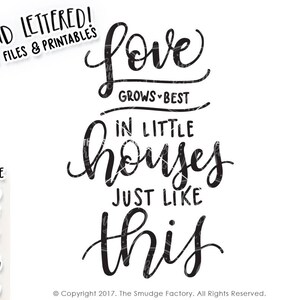 D LETTERED!
FILES & PRINTABLES
Love
GROWS BEST
IN LITTLE
houses
JUST LIKE
this
© Copyright 2017. The Smudge Factory. All Rights Reserved.